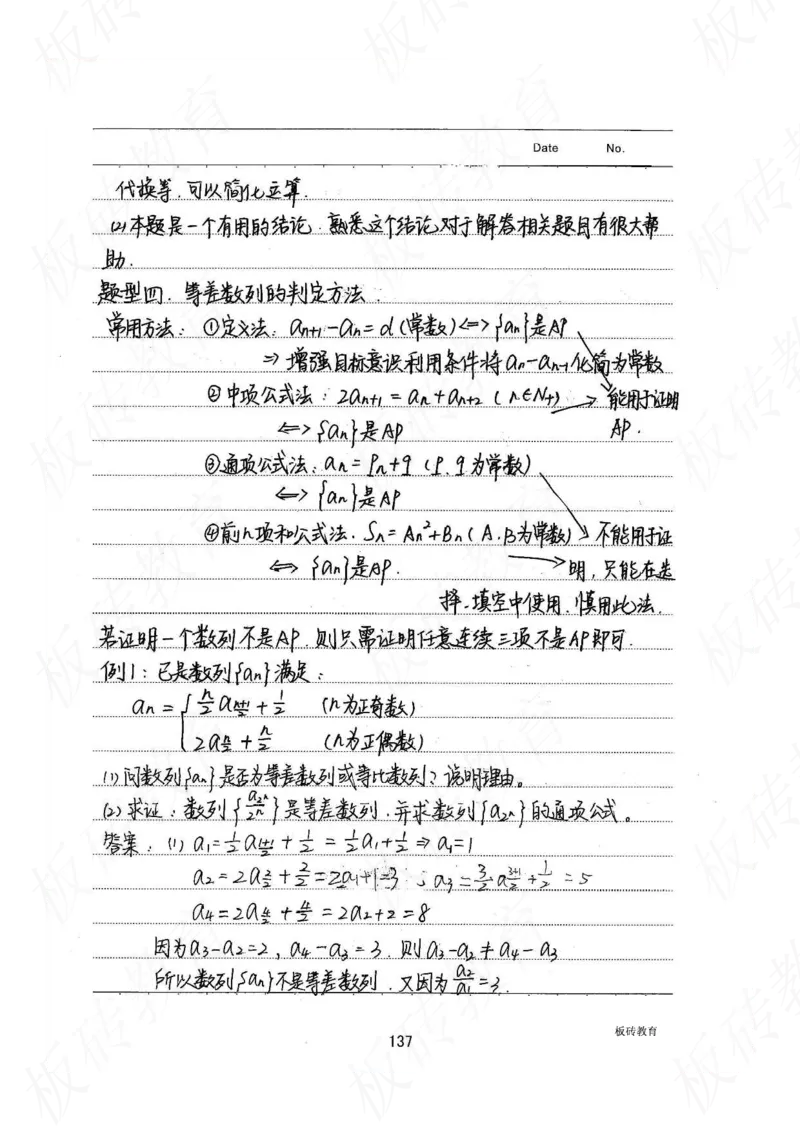 Date No.
代换等,可以简化运算.
(2)本题是一个有用的结论.熟悉这个结论对于解答相关题目有很大帮
助.
题型四.等差数列的判定方法.
常用方法:①定义法:aₙ₊₁-aₙ=d(常数)<=>{aₙ}是AP
=>增强目标意识利用条件将aₙ-aₙ₋₁化简为常数
②中项公式法:2aₙ₊₁=aₙ+aₙ₊₂(n∈N₊) 能用于证明
<=>{aₙ}是AP AP.
③通项公式法:aₙ=Pn+q(P.q为常数)
<=>{aₙ}是AP
④前n项和公式法.Sₙ=An²+Bn(A.B为常数) 不能用于证
<=>{aₙ}是AP. 明,只能在选
择.填空中使用.慎用此法.
若证明一个数列不是AP.则只需证明任意连续三项不是AP即可.
例1:已是数列{aₙ}满足:
aₙ={ n/2 a_{(n+1)/2}+1/2 (n为正奇数)
2a_{n/2}+n/2 (n为正偶数)
(1)问数列{aₙ}是否为等差数列或等比数列?说明理由。
(2)求证:数列{a_{2ⁿ}/2ⁿ}是等差数列.并求数列{a_{2ⁿ}}的通项公式。
答案:(1)a₁=1/2 a_{(1+1)/2}+1/2=1/2 a₁+1/2=>a₁=1
a₂=2a_{2/2}+2/2=2a₁+1=3;a₃=3/2 a_{(3+1)/2}+1/2=5
a₄=2a_{4/2}+4/2=2a₂+2=8
因为a₃-a₂=2,a₄-a₃=3.则a₃-a₂≠a₄-a₃
所以数列{aₙ}不是等差数列.又因为a₂/a₁=3.
137
板砖教育